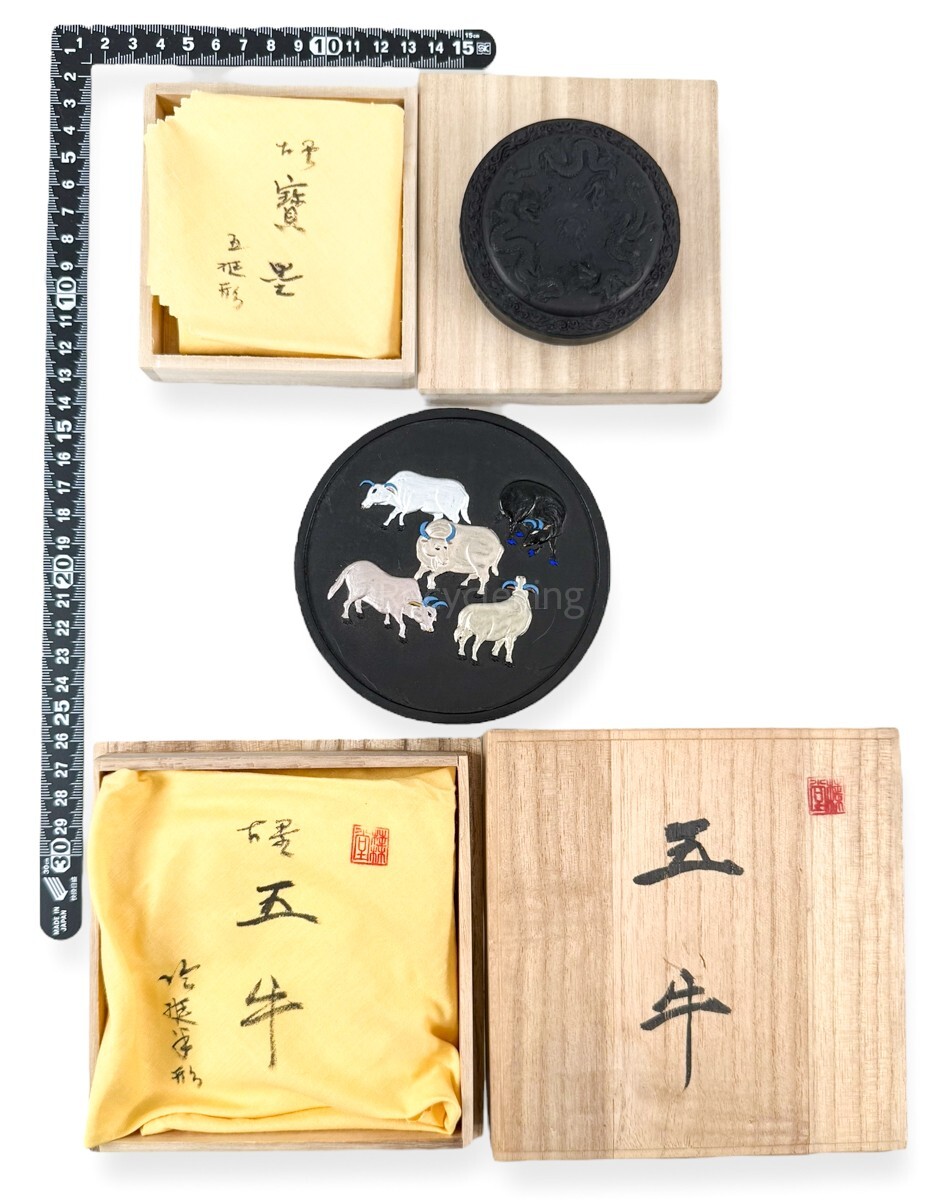 1 2 3 4 5 6 7 8 9 10 11 12 13 14 15
15cm
1 2 3 4 5 6 7 8 9 10 11 12 13 14 15 16 17 18 19 20 21 22 23 24 25 26 27 28 29 30
30cm
MADE IN JAPAN
古墨
寶墨
五挺形
古墨
五牛
拾挺半形
五牛